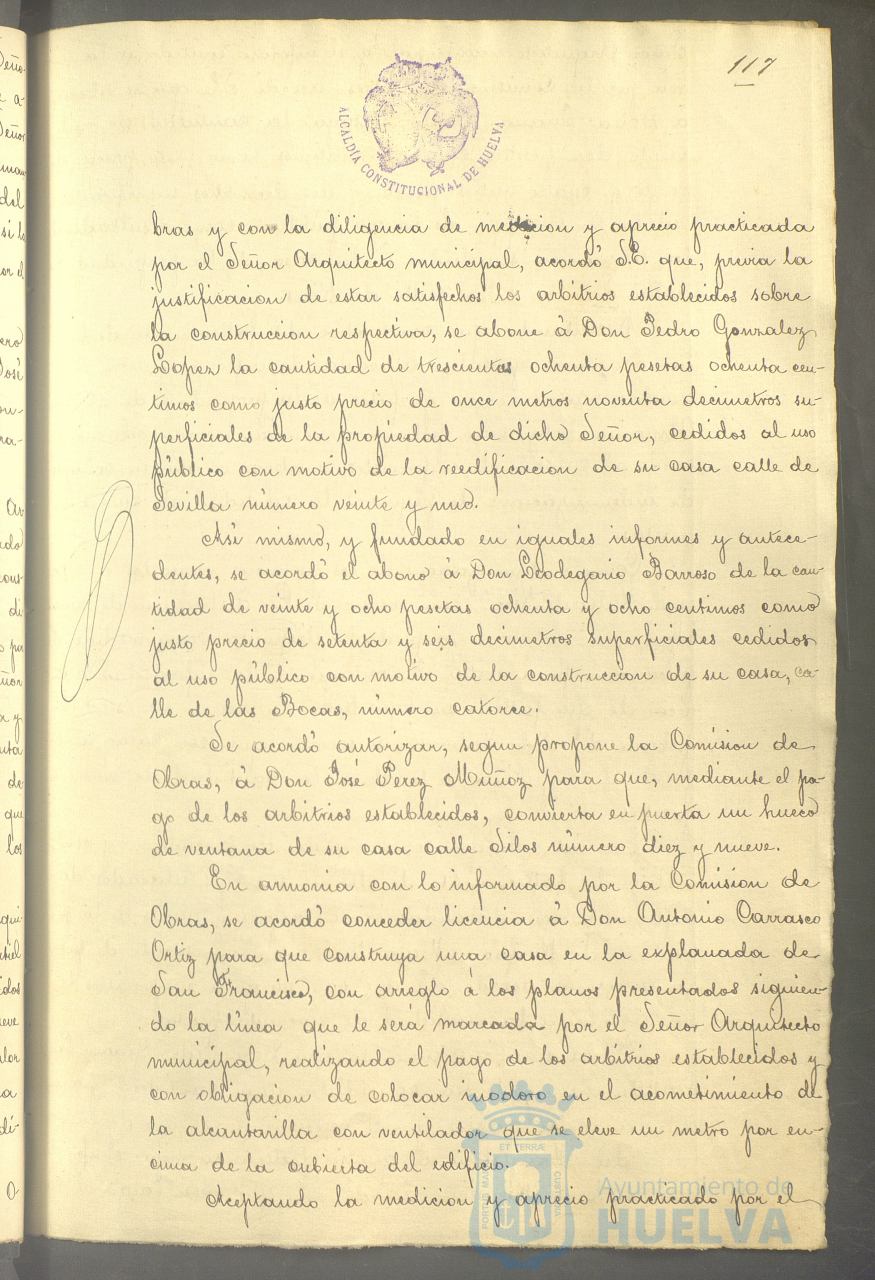 117
ALCALDÍA CONSTITUCIONAL DE HUELVA
bras y con la diligencia de medicion y aprecio practicada
por el Señor Arquitecto municipal, acordó S.E. que, previa la
justificacion de estar satisfechos los arbitrios establecidos sobre
la construccion respectiva, se abone á Don Pedro Gonzalez
Lopez la cantidad de trescientas ochenta pesetas ochenta cen-
timos como justo precio de once metros noventa decimetros su-
perficiales de la propiedad de dicho Señor, cedidos al uso
público con motivo de la reedificacion de su casa calle de
Sevilla número veinte y uno.
Asi mismo, y fundado en iguales informes y antece-
dentes, se acordó el abono á Don Leodegario Barroso de la can-
tidad de veinte y ocho pesetas ochenta y ocho centimos como
justo precio de setenta y seis decimetros superficiales cedidos
al uso público con motivo de la construccion de su casa, ca-
lle de las Bocas, número catorce.
Se acordó autorizar, segun propone la Comision de
Obras, á Don José Perez Muñoz para que, mediante el pa-
go de los arbitrios establecidos, convierta en puerta un hueco
de ventana de su casa calle Silos número diez y nueve.
En armonia con lo informado por la Comision de
Obras, se acordó conceder licencia á Don Antonio Carrasco
Ortiz para que construya una casa en la explanada de
San Francisco, con arreglo á los planos presentados siguien-
do la línea que le será marcada por el Señor Arquitecto
municipal, realizando el pago de los arbitrios establecidos y
con obligacion de colocar inodoro en el acometimiento de
la alcantarilla con ventilador que se eleve un metro por en-
cima de la cubierta del edificio.
Aceptando la medicion y aprecio practicado por el
Ayuntamiento de
HUELVA